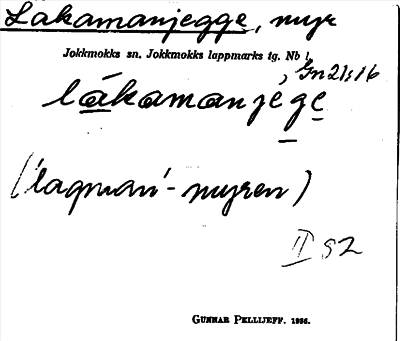 Lakamanjegge, myr
Jokkmokks sn. Jokkmokks lappmarks tg. Nb l.
, Gn 21s16
lákamanjege
('laqman'-myren)
II 92
GUNNAR PELLIJEFF. 1936.